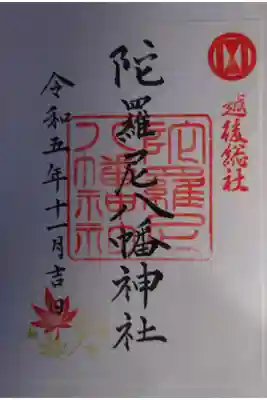 越後総社
陀羅尼八幡神社
陀羅尼
八幡神社
令和五年十一月吉日